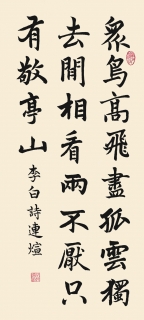 眾鳥高飛盡孤雲獨
去閒相看兩不厭只
有敬亭山
李白詩連煊